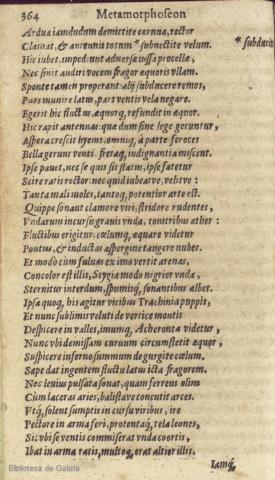 364 Metamorphoseon
Ardua iamdudum demittite cornua, rector
Clamat, & antennis totum * subnectite velum. * subducit
Hic iubet. impediunt aduersæ iussa procellæ,
Nec sinit audiri vocem fragor æquoris vllam.
Sponte tamen properant alij subducere remos,
Pars munire latus, pars ventis vela negare.
Egerit hic fluctus, æquorq́, refundit in æquor.
Hic rapit antennas: quæ dum sine lege geruntur,
Aspera crescit hyems, omniq́, à parte feroces
Bella gerunt venti. fretaq́, indignantia miscent.
Ipse pauet, nec se quis sit status, ipse fatetur
Scire ratis rector: nec quid iubeatve, velitve:
Tanta mali moles, tantoq́, potentior arte est.
Quippe sonant clamore viri, stridore rudentes,
Vndarum incursu grauis vnda, tonitribus æther:
Fluctibus erigitur, cœlumq́, æquare videtur
Pontus, & inductas aspergine tangere nubes.
Et modò cùm fuluas ex imo vertit arenas,
Concolor est illis, Stygia modò nigrior vnda,
Sternitur interdum, spumisq́, sonantibus albet.
Ipsa quoq́, his agitur vicibus Trachinia puppis,
Et nunc sublimis veluti de vertice montis
Despicere in valles, imumq́, Acheronta videtur,
Nunc vbi demissam curuum circumstetit æquor,
Suspicere inferno summum de gurgite cœlum.
Sæpe dat ingentem fluctu latus icta fragorem.
Nec leuius pulsata sonat, quàm ferreus olim
Cùm laceras aries, balistave concutit arces.
Vtq́, solent sumptis in cursu viribus, ire
Pectore in arma feri, protentaq́, tela leones,
Sic vbi se ventis commiserat vnda coortis,
Ibat in arma ratis, multoq́, erat altior illis.
Iamq́,
Biblioteca de Galicia